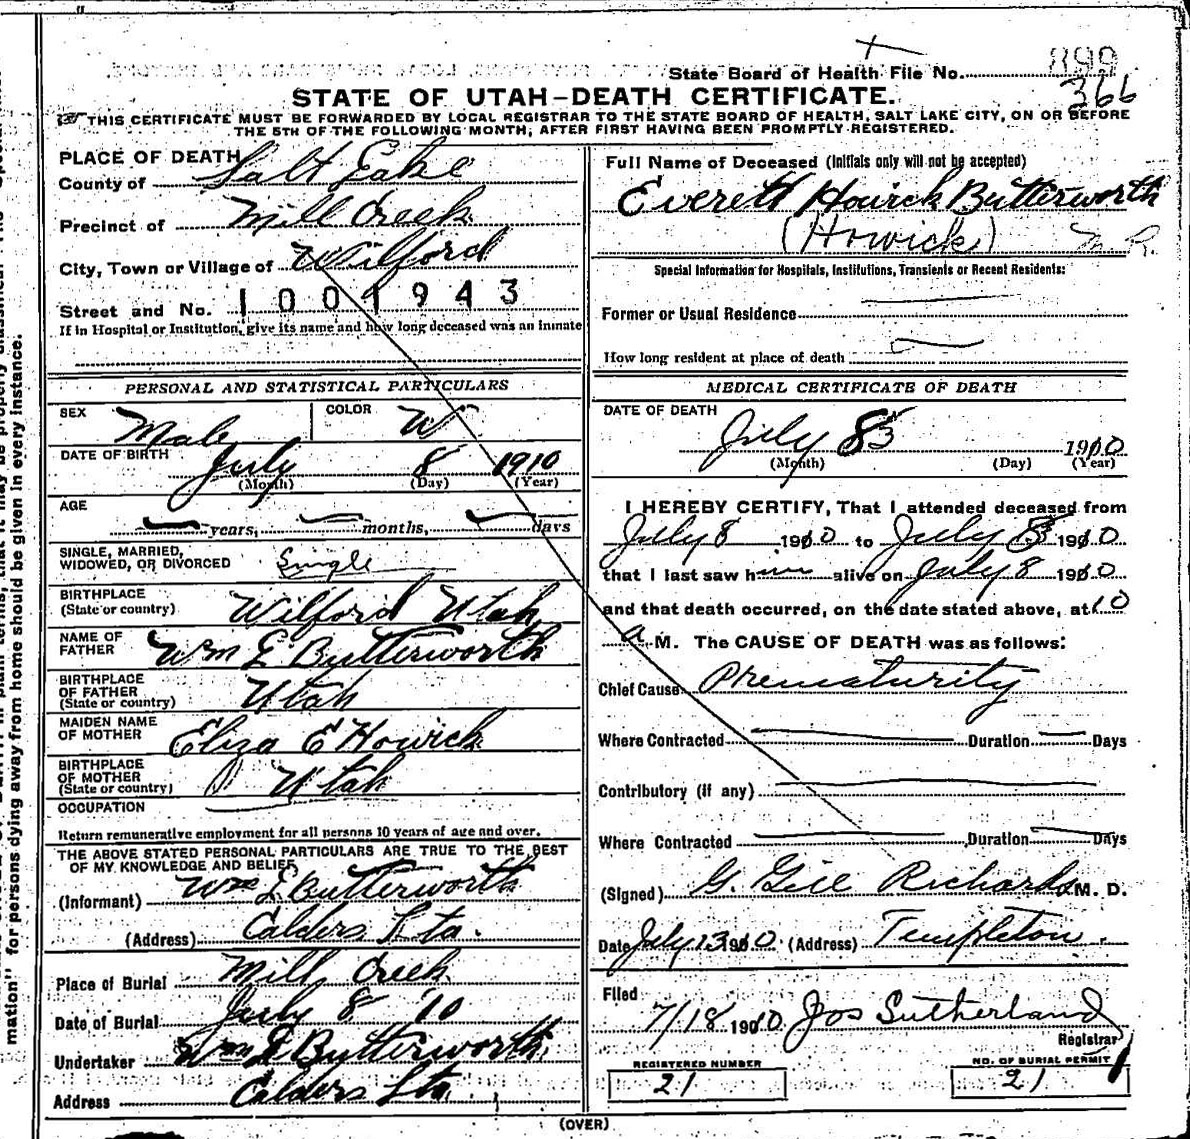 State Board of Health File No. 899
366
STATE OF UTAH—DEATH CERTIFICATE.
THIS CERTIFICATE MUST BE FORWARDED BY LOCAL REGISTRAR TO THE STATE BOARD OF HEALTH, SALT LAKE CITY, ON OR BEFORE
THE 5TH OF THE FOLLOWING MONTH, AFTER FIRST HAVING BEEN PROMPTLY REGISTERED.
PLACE OF DEATH
County of Salt Lake
Precinct of Mill Creek
City, Town or Village of Wilford
Street and No. 1001943
If in Hospital or Institution, give its name and how long deceased was an inmate
PERSONAL AND STATISTICAL PARTICULARS
SEX Male COLOR W
DATE OF BIRTH July 8 1910
(Month) (Day) (Year)
AGE
years, months, days
SINGLE, MARRIED,
WIDOWED, OR DIVORCED Single
BIRTHPLACE
(State or country) Wilford Utah
NAME OF
FATHER Wm E Butterworth
BIRTHPLACE
OF FATHER
(State or country) Utah
MAIDEN NAME
OF MOTHER Eliza E Howick
BIRTHPLACE
OF MOTHER
(State or country) Utah
OCCUPATION
Return remunerative employment for all persons 10 years of age and over.
THE ABOVE STATED PERSONAL PARTICULARS ARE TRUE TO THE BEST
OF MY KNOWLEDGE AND BELIEF
(Informant) Wm E Butterworth
(Address) Calders Sta.
Place of Burial Mill Creek
Date of Burial July 8 10
Undertaker Wm E Butterworth
Address Calders Sta.
Full Name of Deceased (Initials only will not be accepted)
Everett Howick Butterworth
(Howick) M R.
Special Information for Hospitals, Institutions, Transients or Recent Residents:
Former or Usual Residence
How long resident at place of death
MEDICAL CERTIFICATE OF DEATH
DATE OF DEATH
July 8 1910
(Month) (Day) (Year)
I HEREBY CERTIFY, That I attended deceased from
July 8 1910 to July 8 1910
that I last saw him alive on July 8 1910
and that death occurred, on the date stated above, at 10
a M. The CAUSE OF DEATH was as follows:
Chief Cause Prematurity
Where Contracted Duration Days
Contributory (if any)
Where Contracted Duration Days
(Signed) G. Gill Richards M. D.
Date July 13 1910 (Address) Templeton.
Filed
7/18 1910 Jos Sutherland
Registrar
REGISTERED NUMBER
21
NO. OF BURIAL PERMIT
21
(OVER)
mation" for persons dying away from home should be given in every instance.